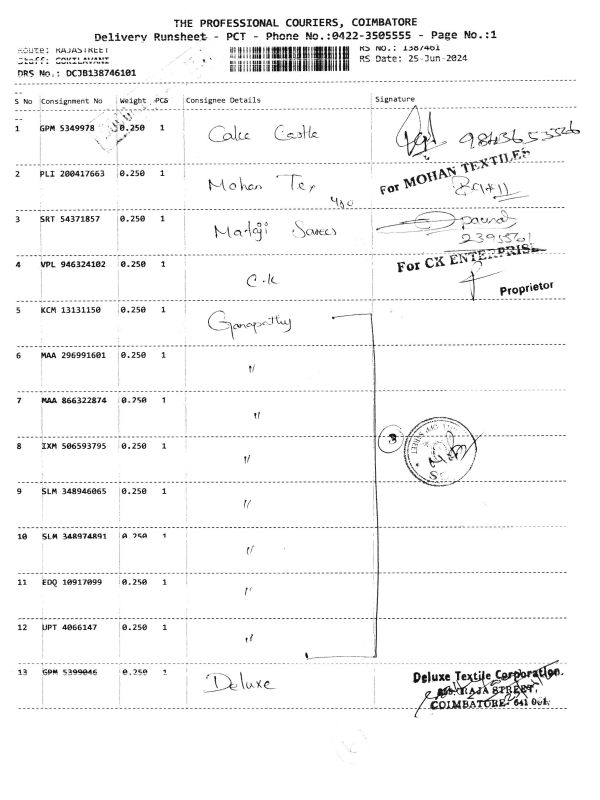 THE PROFESSIONAL COURIERS, COIMBATORE
Delivery Runsheet - PCT - Phone No.:0422-3505555 - Page No.:1
Route: RAJASTREET RS No.: 1387461
Staff: GOKILAVANI RS Date: 25-Jun-2024
DRS No.: DCJB138746101
S No Consignment No Weight PCS Consignee Details Signature
1 GPM 5349978 0.250 1 Cake Castle
For MOHAN TEXTILES
2 PLI 200417663 0.250 1 Mohan Tex
3 SRT 54371857 0.250 1
For CK ENTERPRISE
4 VPL 946324102 0.250 1 C.K
Proprietor
5 KCM 13131150 0.250 1 Ganapathy
6 MAA 296991601 0.250 1 "
7 MAA 866322874 0.250 1 "
8 IXM 506593795 0.250 1 " 8
9 SLM 348946065 0.250 1 "
10 SLM 348974891 0.250 1 "
11 EDQ 10917099 0.250 1 "
12 UPT 4066147 0.250 1 "
13 GPM 5399046 0.250 1 Deluxe Deluxe Textile Corporation.
RAJA STREET,
COIMBATORE- 641 001.